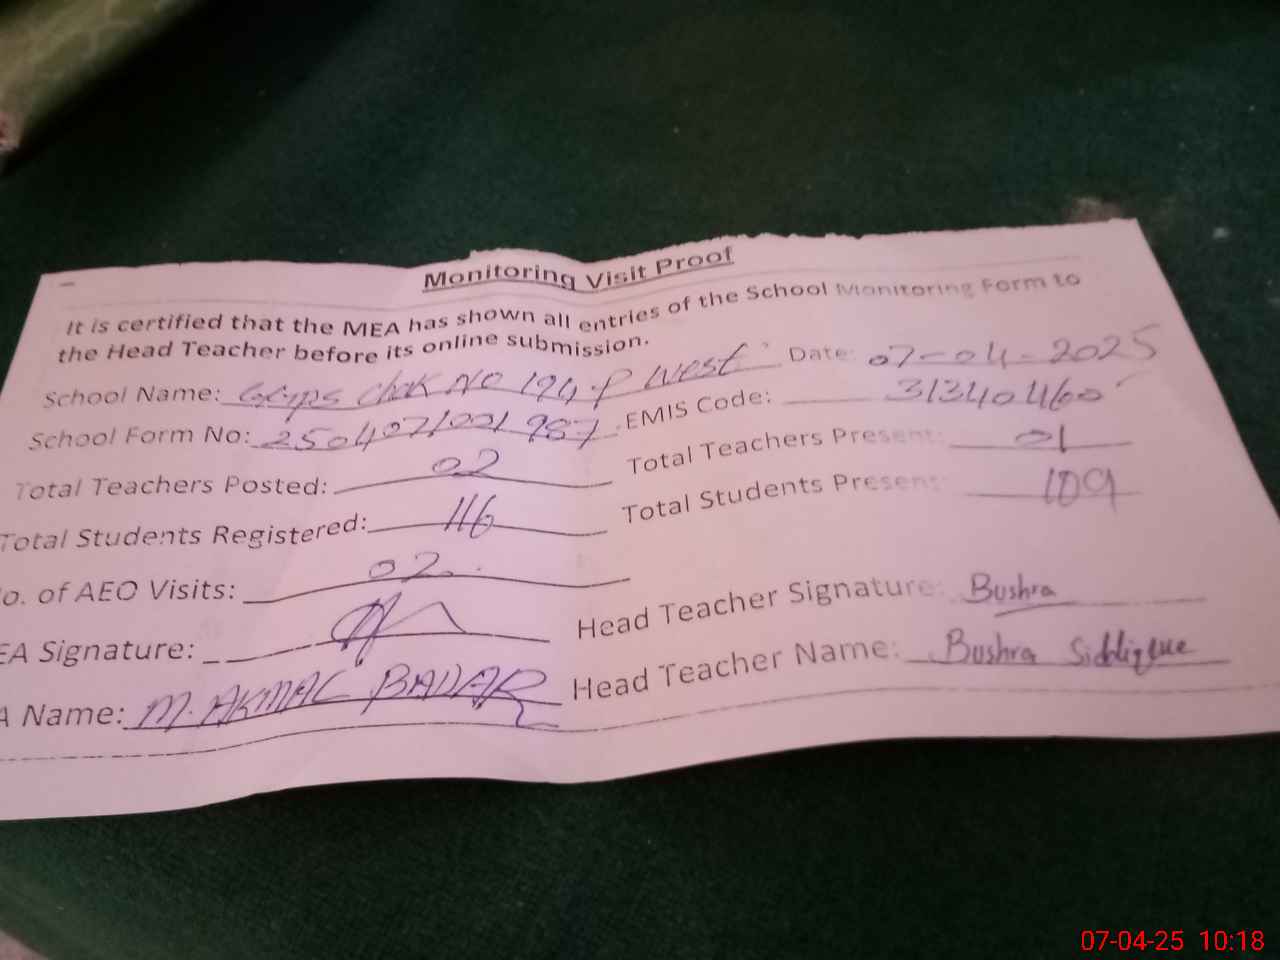 Monitoring Visit Proof
It is certified that the MEA has shown all entries of the School Monitoring Form to
the Head Teacher before its online submission.
School Name: GGPS Chak No 194-P West Date: 07-04-2025
School Form No: 2504071001987 EMIS Code: 31340460
Total Teachers Posted: 02 Total Teachers Present: 01
Total Students Registered: 116 Total Students Present: 109
o. of AEO Visits: 02
EA Signature: Head Teacher Signature: Bushra
A Name: M. AKMAL BADAR Head Teacher Name: Bushra Siddique
07-04-25 10:18